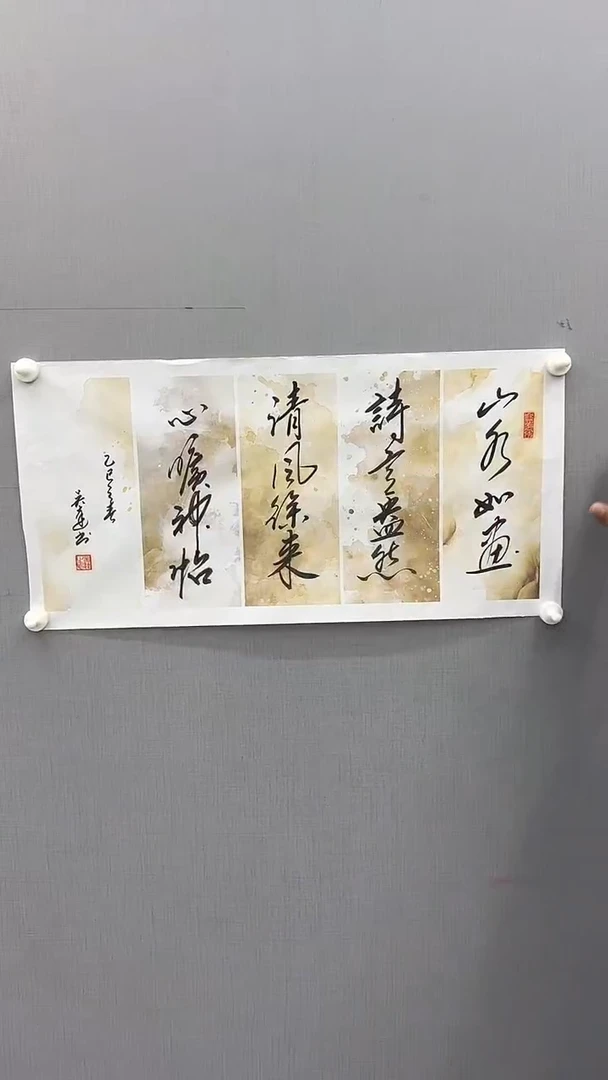 山水如画
詩意盎然
清风徐来
心曠神怡
乙巳之春